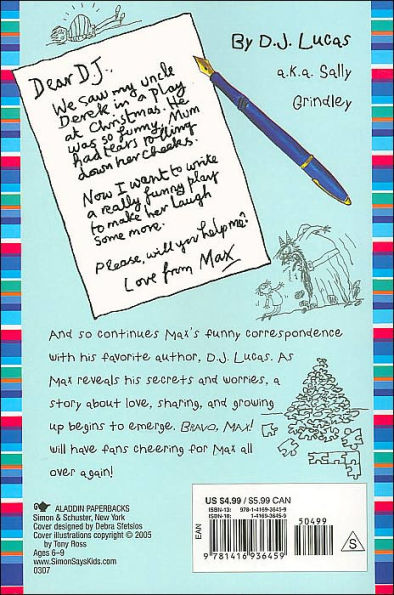 Dear D.J.,
We saw my uncle
Derek in a play
at Christmas. He
was so funny, Mum
had tears rolling
down her cheeks.
Now I want to write
a really funny play
to make her laugh
some more.
Please, will you help me?
Love from Max
By D.J. Lucas
a.k.a. Sally
Grindley
And so continues Max's funny correspondence
with his favorite author, D.J. Lucas. As
Max reveals his secrets and worries, a
story about love, sharing, and growing
up begins to emerge. Bravo, Max!
will have fans cheering for Max all
over again!
ALADDIN PAPERBACKS
Simon & Schuster, New York
Cover designed by Debra Sfetsios
Cover illustrations copyright © 2005
by Tony Ross
Ages 6–9
www.SimonSaysKids.com
0307
US $4.99 / $5.99 CAN
ISBN-13: 978-1-4169-3645-9
ISBN-10: 1-4169-3645-9
50499
EAN
9 781416 936459
S